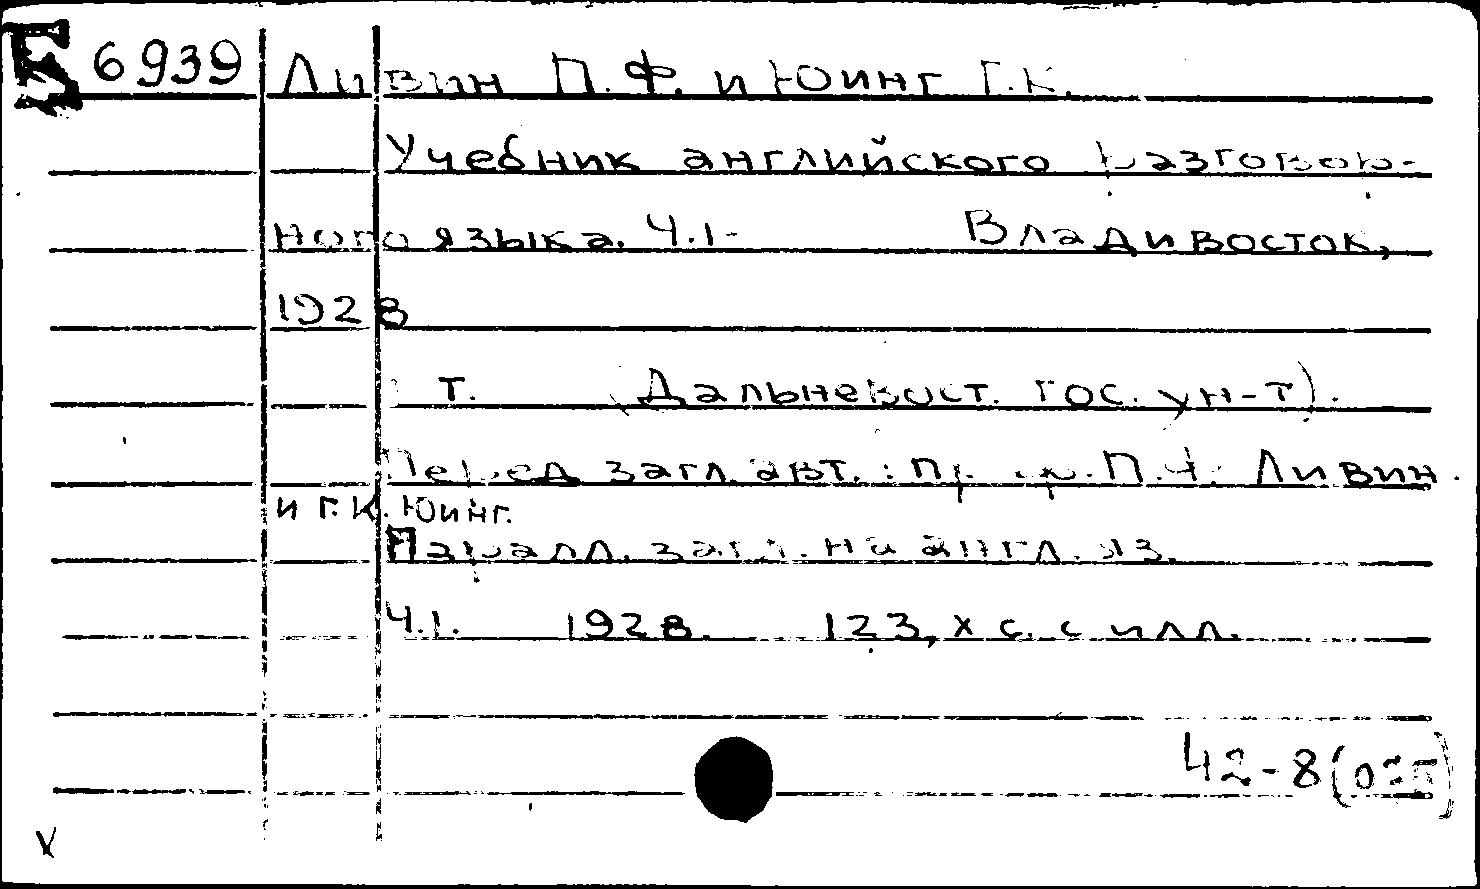 Б 6939 Ливин П.Ф. и Юинг Г.К.
Учебник английского разговор-
ного языка. Ч.1- Владивосток,
1928
т. (Дальневост. гос. ун-т).
Перед загл. авт.: П. Ливин
и Г.К. Юинг.
Паралл. загл. на англ. яз.
Ч.1. 1928. 123, х с. с илл.
42-8